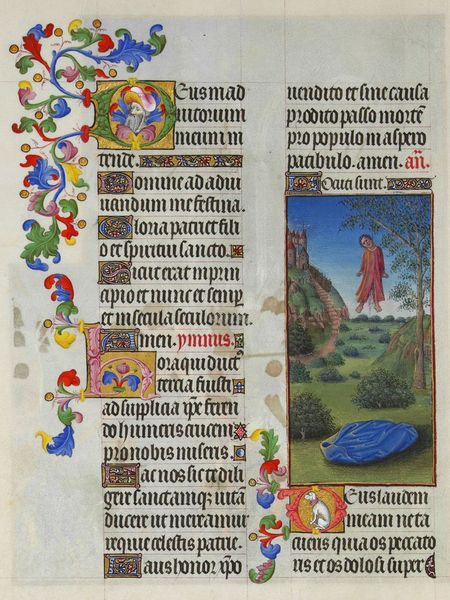 Deus in ad
iutorium
meum in
tende.
Domine ad adiu
uandum me festina.
Gloria patri et fili
o et spiritui sancto.
Sicut erat in prin
cipio et nunc et semp̱
et in secula seculorum.
Amen. ymnus.
Hora qui duct᾽
tercia fuisti
ad supplicia xp̄e feren
do humeris crucem
pro nobis miseris.
Fac nos sic te dili
gere sanctamq; uitā
ducere ut mereamur
requie celestis patrie.
Laus honor xp̄o
uendito et sine causa
prodito passo mortē
pro populo in aspero
patibulo. amen. añ.
Locuti sunt.
Deus laudem
meam ne ta
cueris quia os peccato
ris et os dolosi super